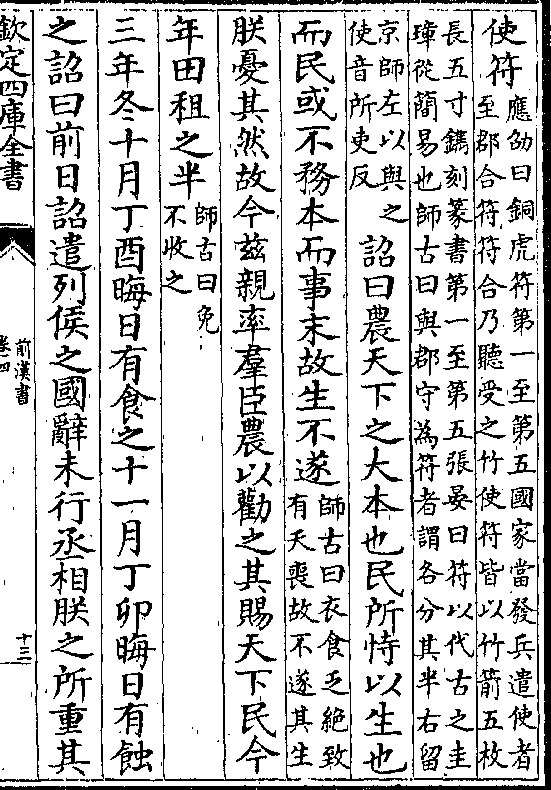 使符
應劭曰銅虎符第一至第五國家當發兵遣使者
至郡合符符合乃聽受之竹使符皆以竹箭五枚
長五寸鐫刻篆書第一至第五張晏曰符以代古之圭
璋從簡易也師古曰與郡守為符者謂各分其半右留
京師左以與之
使音所吏反
詔曰農天下之大本也民所恃以生也
而民或不務本而事末故生不遂
師古曰衣食乏絶致
有天喪故不遂其生
朕憂其然故今茲親率羣臣農以勸之其賜天下民今
年田租之半
師古曰免
不收之
三年冬十月丁酉晦日有食之十一月丁卯晦日有蝕
之詔曰前日詔遣列侯之國辭未行丞相朕之所重其
欽定四庫全書
前漢書
卷四
十三